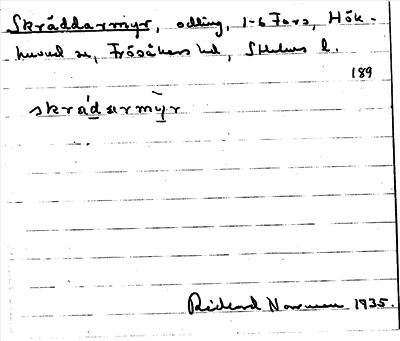 Skräddarmyr, odling, 1-6 Fors, Hök-
huvud sn, Frösåkers hd, Sthlms l.
189
skrädarmy̆r
Richard Norman 1935.